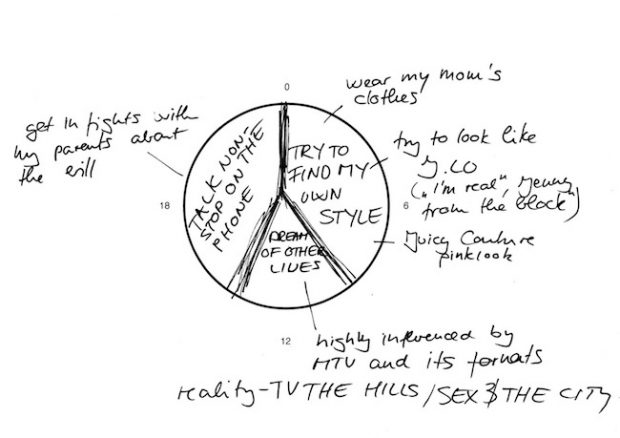 0
wear my mom's
clothes
get in fights with
my parents about
the bill
TALK NON-
STOP ON THE
PHONE
TRY TO
FIND MY
OWN
STYLE
try to look like
J.LO
("I'm real", Jenny
from the block)
18
6
Juicy Couture
pink look
DREAM
OF OTHER
LIVES
12
highly influenced by
MTV and its formats
reality-TV THE HILLS / SEX & THE CITY